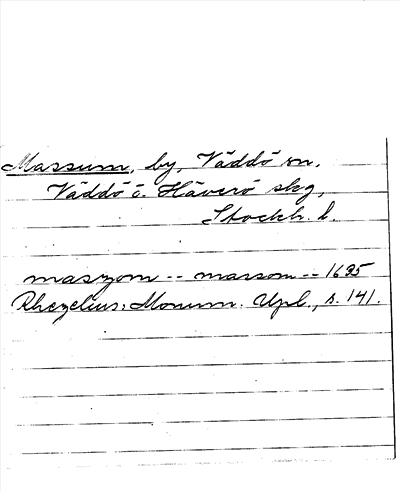 Massum, by, Väddö sn,
Väddö o. Häverö skg,
Stockh. l.
maszom -- marsom -- 1635
Rhezelius: Monum. Upl., s. 141.